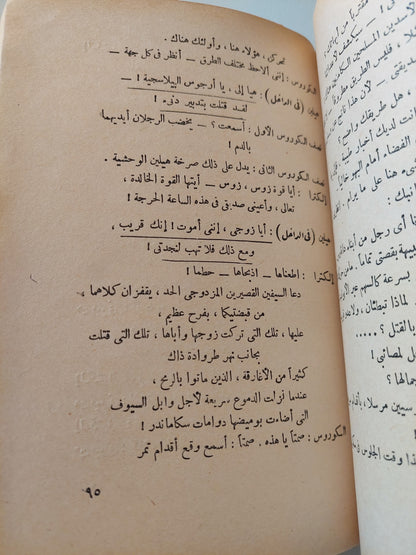 تحركي ، هؤلاء هنا ، وأولئك هناك .
الكوروس : إننى ألاحظ مختلف الطرق — أنظر فى كل جهة —
هيلين (فى الداخل) : هيا إلى ، يا أرجوس البيلاسجية !
لقد قتلت بتدبير دنىء !
نصف الكوروس الأول : أسمعت ؟ — يخضب الرجلان أيديهما
بالدم !
نصف الكوروس الثانى : يدل على ذلك صرخة هيلين الوحشية .
إلكترا : أيا قوة زوس ، زوس — أيتها القوة الخالدة ،
تعالى ، وأعينى صديقى فى هذه الساعة الحرجة !
هيلين (فى الداخل) : أيا زوجى ، إننى أموت ! إنك قريب ،
ومع ذلك فلا تهب لنجدتى !
إلكترا : اطعناها — اذبحاها — حطما !
دعا السيفين القصيرين المزدوجى الحد ، يقفزان كلاهما
من قبضتيكما ، بفرح عظيم ،
عليها ، تلك التى تركت زوجها وأباها ، تلك التى قتلت
بجانب نهر طروادة ذاك
كثيراً من الأغارقة ، الذين ماتوا بالرمح ،
عندما نزلت الدموع سريعة لأجل وابل السيوف
التى أضاءت بوميضها دوامات سكاماندر !
الكوروس : صمتاً يا هذه . صمتاً : أسمع وقع أقدام تمر
٩٥